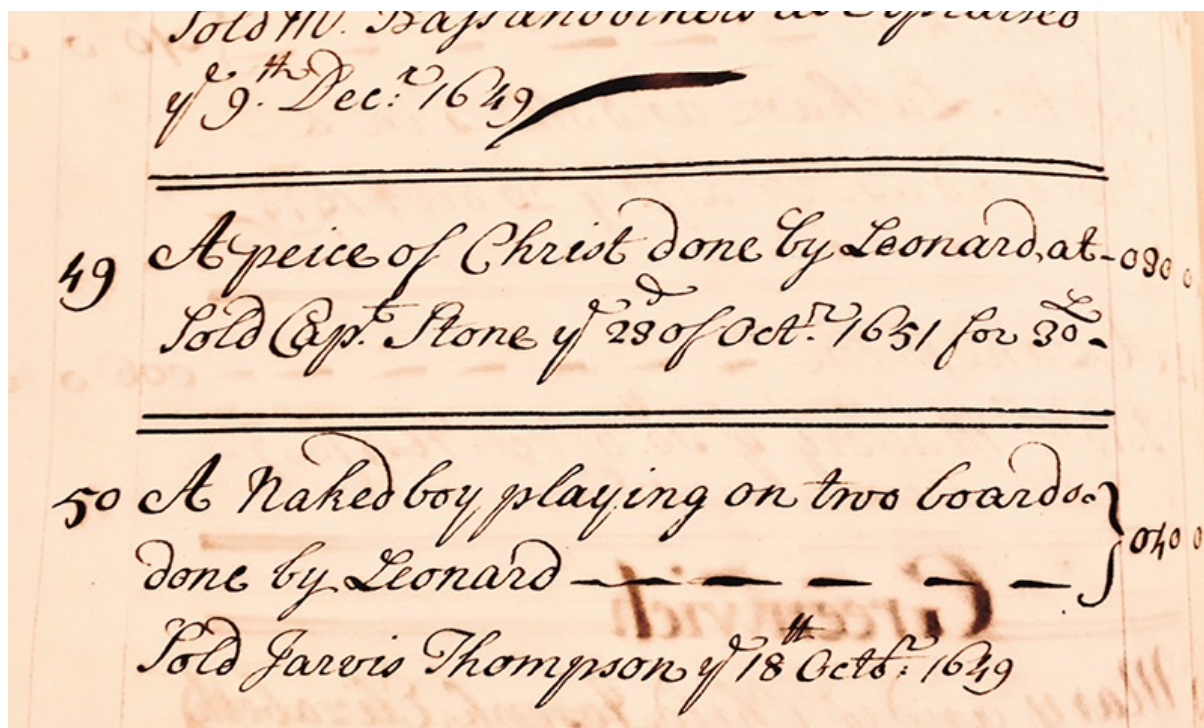 Sold Mr. Bass and others as Apraised
ye 9th. Decr. 1649
49 A peice of Christ done by Leonard, at - 030 0
Sold Capt. Stone ye 23d of Octr. 1651 for 30L -
50 A Naked boy playing on two boards.
done by Leonard — — — — — 040 0
Sold Jarvis Thompson ye 18th Octbr. 1649
Greenwich